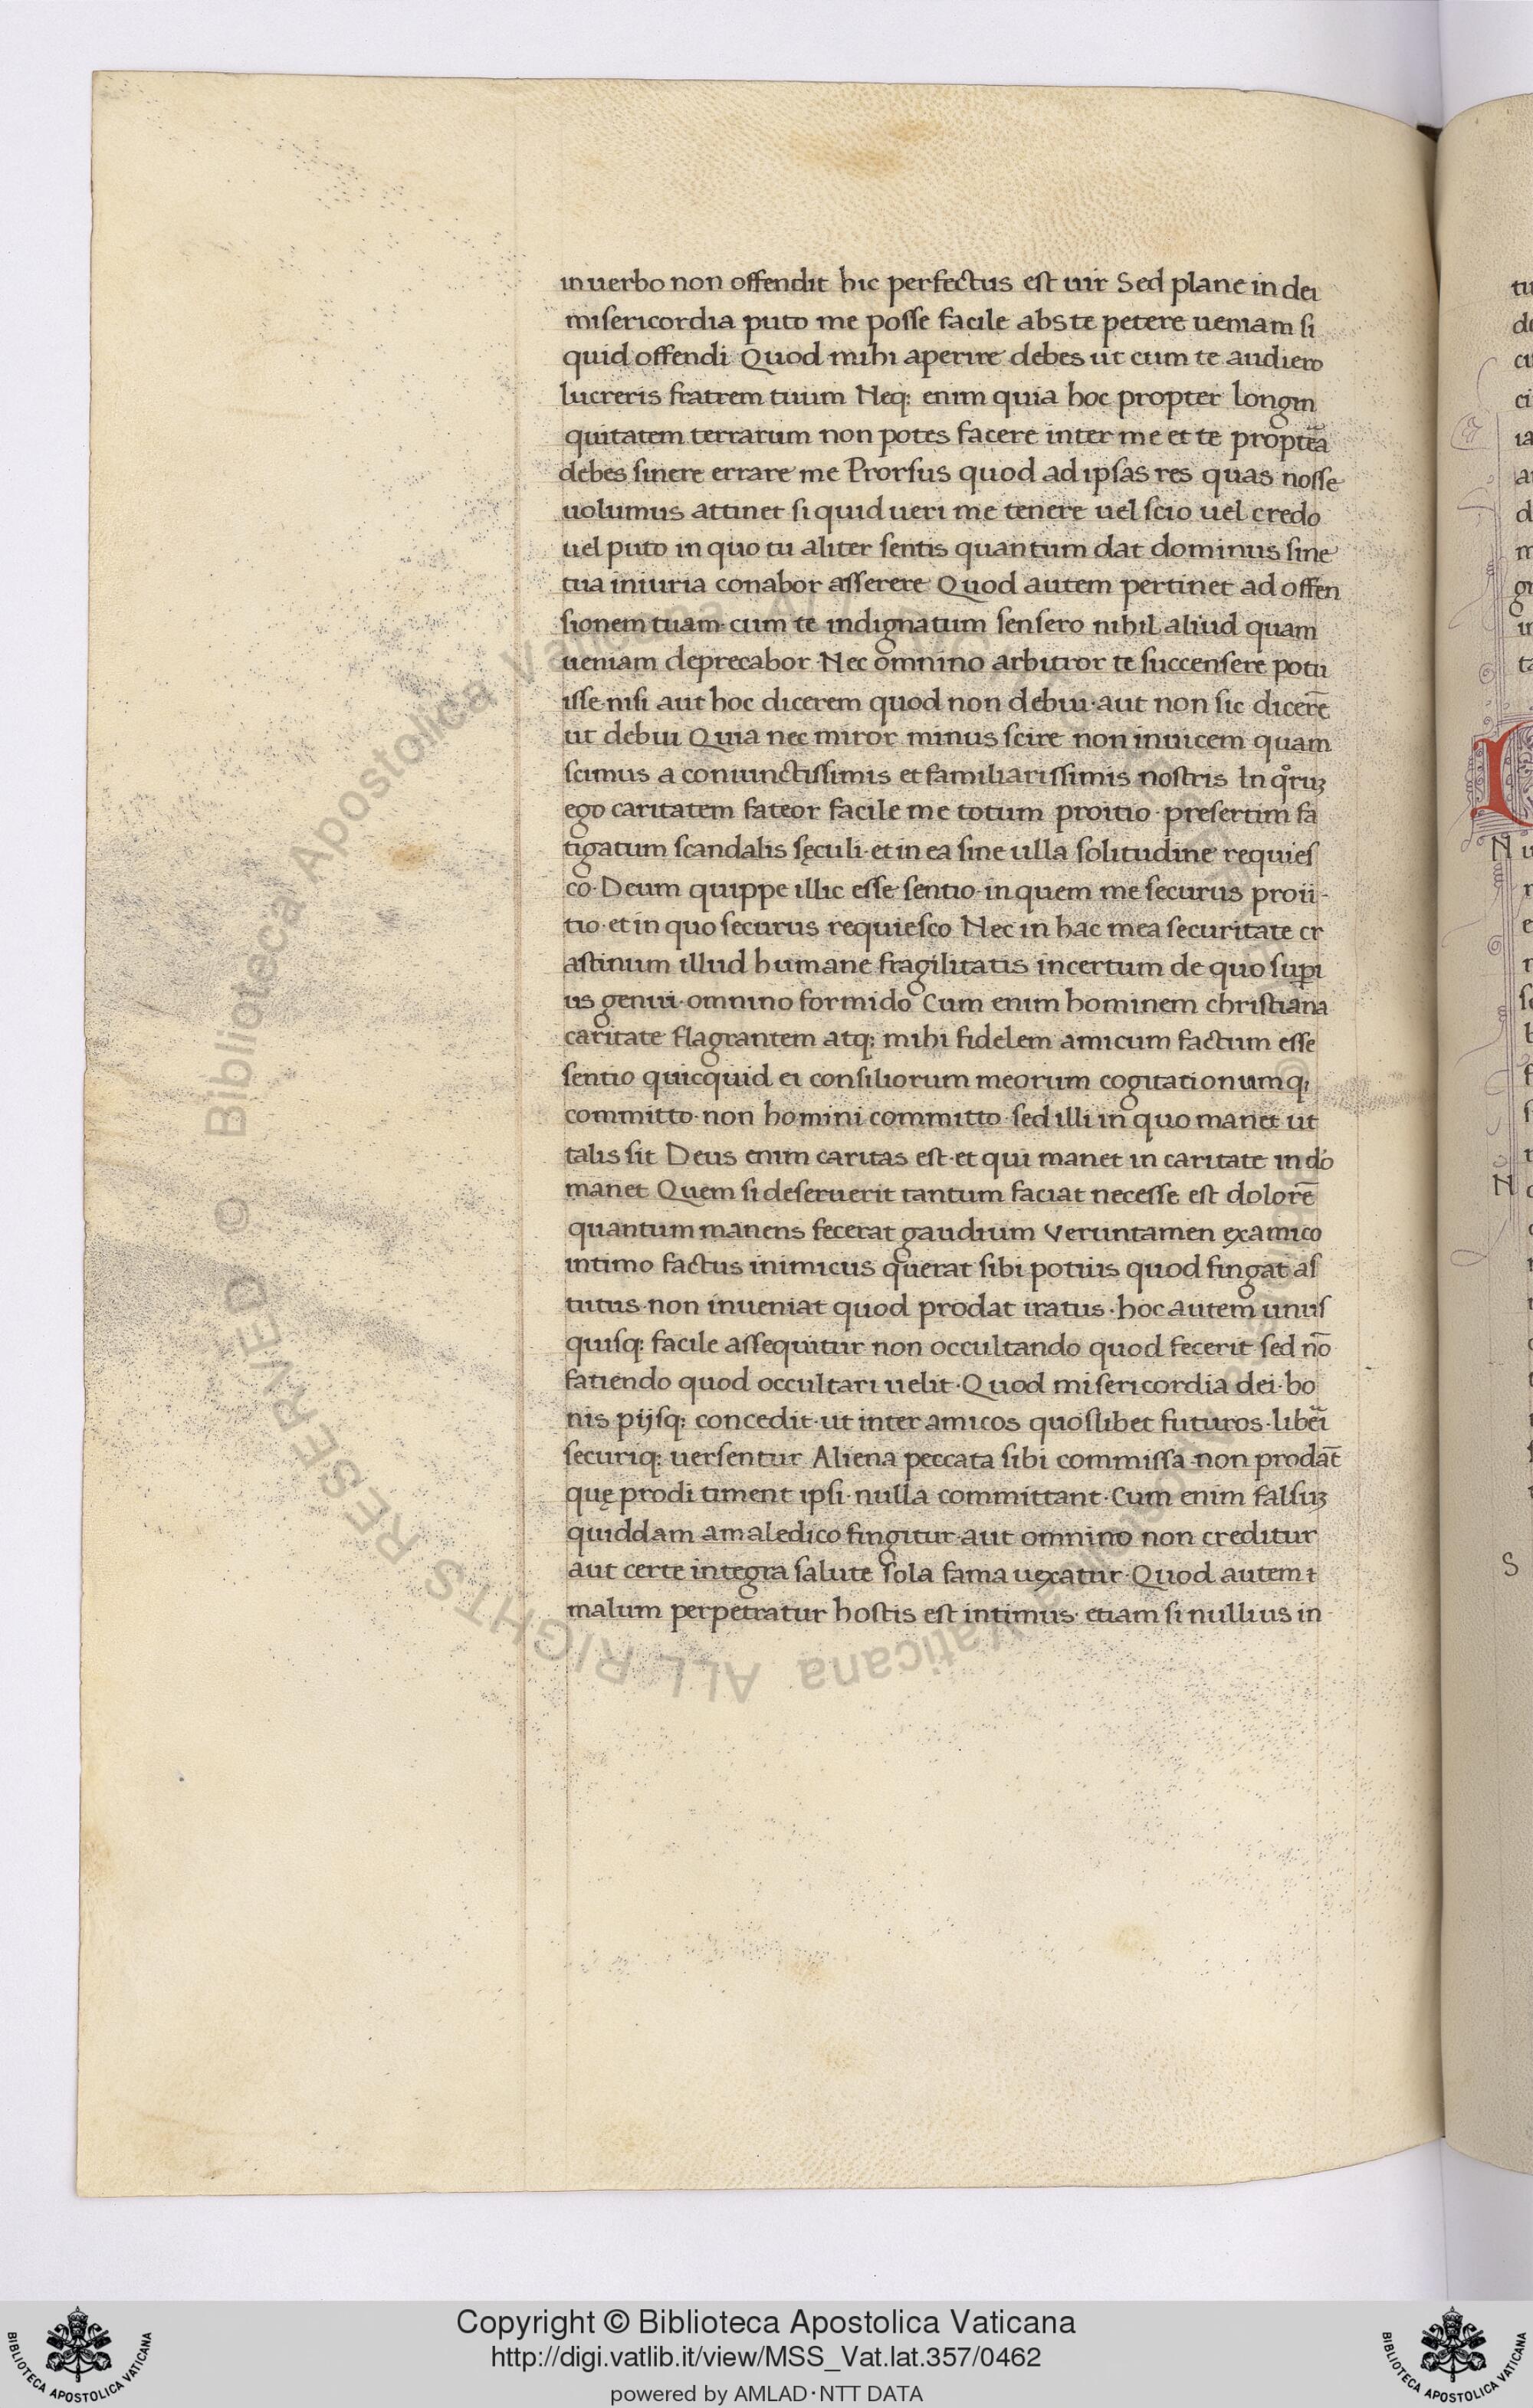 in uerbo non offendit hic perfectus est uir Sed plane in dei
misericordia puto me posse facile abs te petere ueniam si
quid offendi Quod mihi aperire debes ut cum te audiero
lucreris fratrem tuum Neq; enim quia hoc propter longin
quitatem terrarum non potes facere inter me et te proptea
debes sinere errare me Prorsus quod ad ipsas res quas nosse
uolumus attinet si quid ueri me tenere uel scio uel credo
uel puto in quo tu aliter sentis quantum dat dominus sine
tua iniuria conabor asserere Quod autem pertinet ad offen
sionem tuam cum te indignatum sensero nihil aliud quam
ueniam deprecabor· Nec omnino arbitror te succensere potu
isse nisi aut hoc dicerem quod non debui· aut non sic dicerē
ut debui Quia nec miror minus scire non inuicem quam
scimus a coniunctissimis et familiarissimis nostris In qͦrūꝫ
ego caritatem fateor facile me totum proitio· presertim fa
tigatum scandalis sęculi· et in ea sine ulla solitudine requies
co· Deum quippe illic esse sentio· in quem me securus proii-
tio· et in quo securus requiesco Nec in hac mea securitate cr
astinum illud humane fragilitatis incertum de quo suꝑi
us genui· omnino formido Cum enim hominem christiana
caritate flagrantem atq; mihi fidelem amicum factum esse
sentio quicquid ei consiliorum meorum cogitationumq;
committo· non homini committo· sed illi in quo manet ut
talis sit Deus enim caritas est· et qui manet in caritate in do
manet Quem si deseruerit tantum faciat necesse est dolorē
quantum manens fecerat gaudium Veruntamen ex amico
intimo factus inimicus querat sibi potius quod fingat as
tutus· non inueniat quod prodat iratus· hoc autem unus
quisq; facile assequitur non occultando quod fecerit sed nō
fatiendo quod occultari uelit· Quod misericordia dei· bo
nis pijsq; concedit· ut inter amicos quoslibet futuros· libēi
securiq; uersentur Aliena peccata sibi commissa non prodāt
quę prodi timent ipsi· nulla committant· Cum enim falsuꝫ
quiddam a maledico fingitur· aut omnino non creditur
aut certe integra salute sola fama uexatur· Quod autem ɿ
malum perpetratur hostis est intimus· etiam si nullius in
Copyright © Biblioteca Apostolica Vaticana
http://digi.vatlib.it/view/MSS_Vat.lat.357/0462
powered by AMLAD·NTT DATA